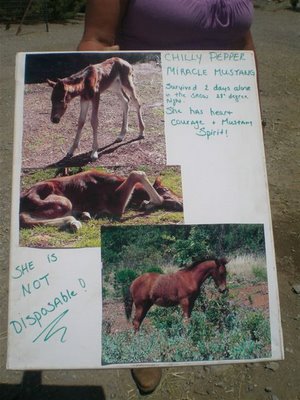 CHILLY PEPPER
MIRACLE MUSTANG
Survived 2 days alone
in the snow 28° degree
night.
She has heart
courage + Mustang
Spirit!
SHE IS
NOT
DISPOSABLE!